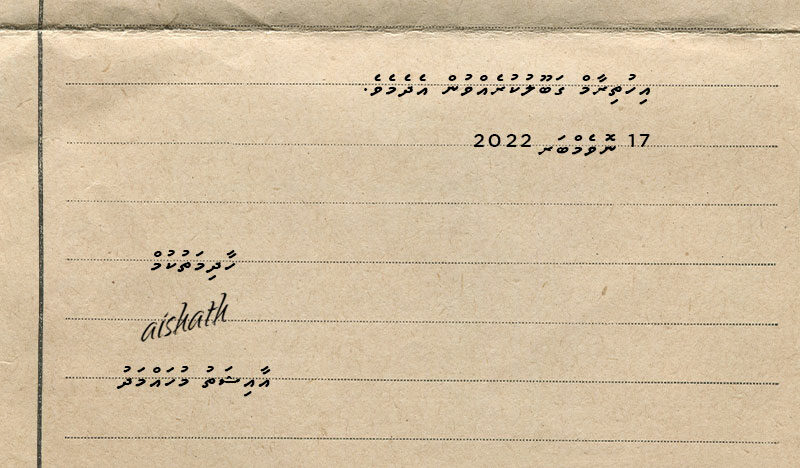 އިހުތިރާމް ގަބޫލުކުރެއްވުން އެދެމެވެ.
17 ނޮވެމްބަރ 2022
ހާދިމަތުކުމް
aishath
އާއިޝަތު މުހައްމަދު